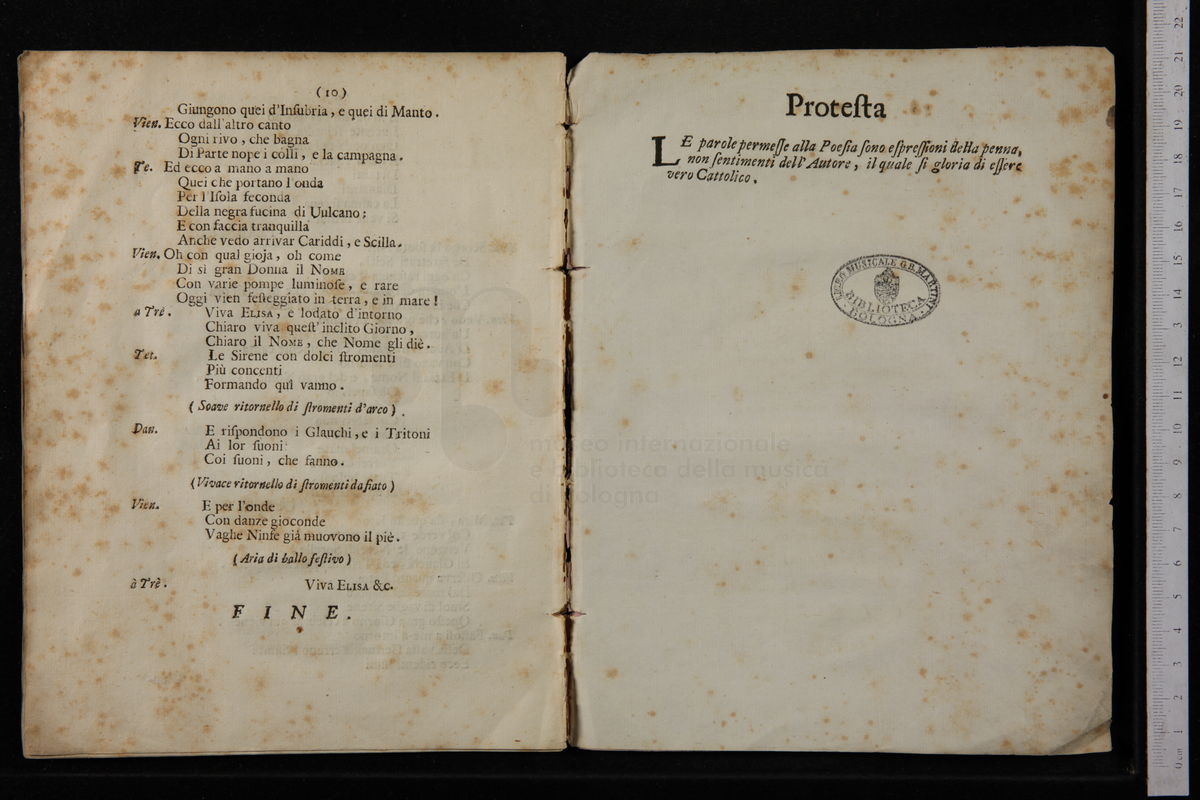 (10)
Giungono quei d'Inſubria, e quei di Manto.
Vien. Ecco dall'altro canto
Ogni rivo, che bagna
Di Parte nope i colli, e la campagna.
Te. Ed ecco a mano a mano
Quei che portano l'onda
Per l'Iſola feconda
Della negra fucina di Uulcano;
E con faccia tranquilla
Anche vedo arrivar Cariddi, e Scilla.
Vien. Oh con qual gioja, oh come
Di si gran Donna il NOME
Con varie pompe luminoſe, e rare
Oggi vien feſteggiato in terra, e in mare!
a Trè. Viva ELISA, e lodato d'intorno
Chiaro viva queſt'inclito Giorno,
Chiaro il NOME, che Nome gli diè.
Tet. Le Sirene con dolci ſtromenti
Più concenti
Formando quì vanno.
(Soave ritornello di ſtromenti d'arco).
Dan. E riſpondono i Glauchi, e i Tritoni
Ai lor ſuoni
Coi ſuoni, che fanno.
(Vivace ritornello di ſtromenti da fiato)
Vien. E per l'onde
Con danze gioconde
Vaghe Ninfe già muovono il piè.
(Aria di ballo feſtivo)
à Trè. Viva ELISA &c.
FINE.
Proteſta
LE parole permeſſe alla Poeſia ſono eſpreſſioni della penna,
non ſentimenti dell'Autore, il quale ſi gloria di eſſere
vero Cattolico.
LICEO MUSICALE G.B. MARTINI
BIBLIOTECA
BOLOGNA
museo internazionale
e biblioteca della musica
di bologna
0 cm 1 2 3 4 5 6 7 8 9 10 11 12 13 14 15 16 17 18 19 20 21 22